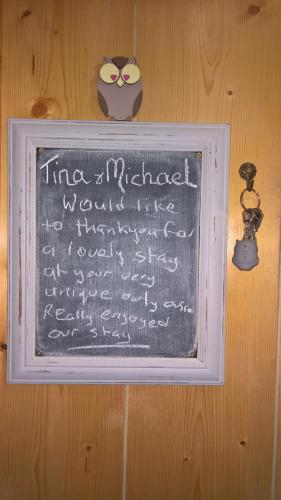 Tina & Michael
Would like
to thankyou for
a lovely stay
at your very
unique owly oasis
REally enjoyed
our stay